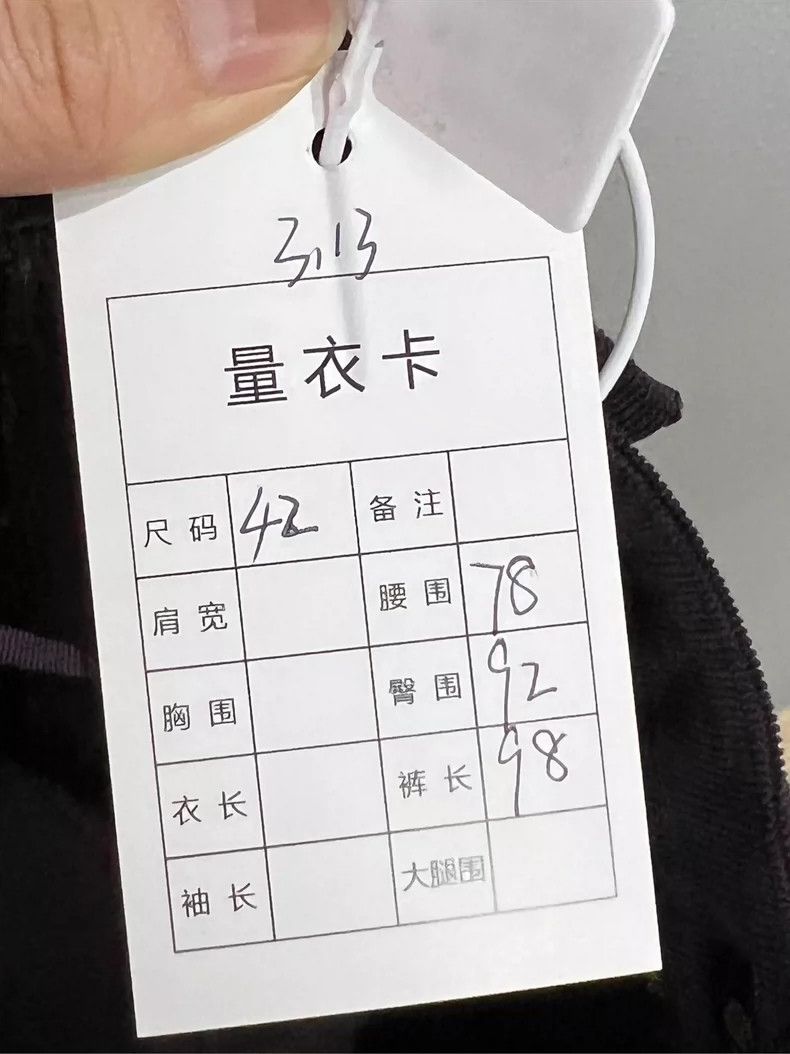 3,13
量衣卡
尺码 42 备注
肩宽 腰围 78
胸围 臀围 92
衣长 裤长 98
袖长 大腿围